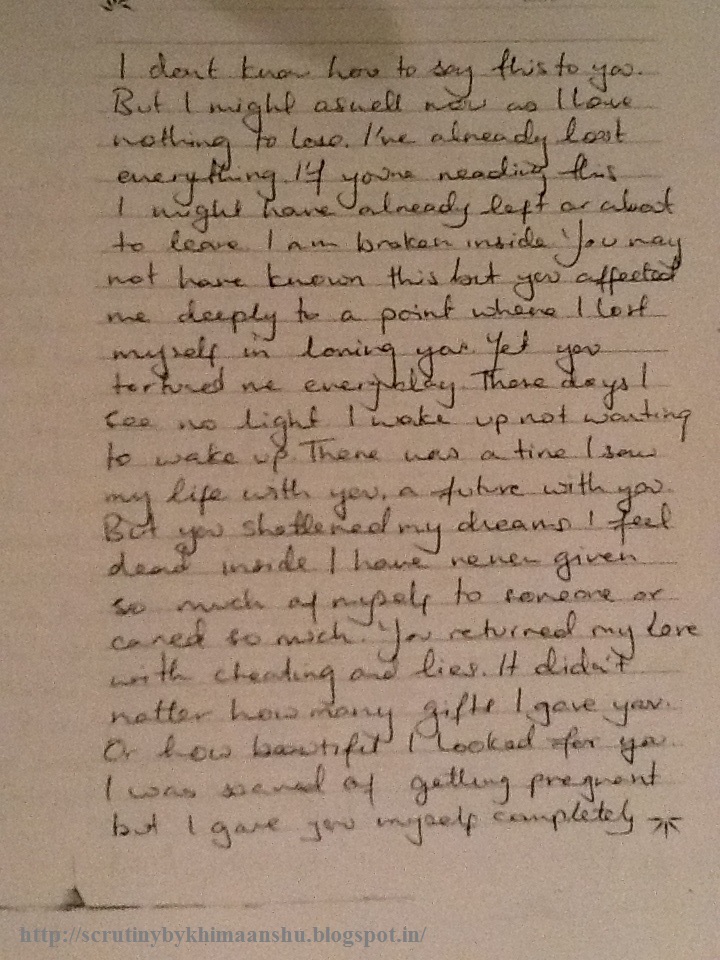 I dont know how to say this to you.
But I might aswell now as I have
nothing to lose. I've already lost
everything. If you're reading this
I might have already left or about
to leave. I am broken inside. You may
not have known this but you affected
me deeply to a point where I lost
myself in loving you. Yet you
tortured me everyday. These days I
see no light I wake up not wanting
to wake up. There was a time I saw
my life with you, a future with you.
But you shattered my dreams. I feel
dead inside. I have never given
so much of myself to someone or
cared so much. You returned my love
with cheating and lies. It didn't
matter how many gifts I gave you.
Or how beautiful I looked for you.
I was scared of getting pregnant
but I gave you myself completely
http://scrutinybykhimaanshu.blogspot.in/